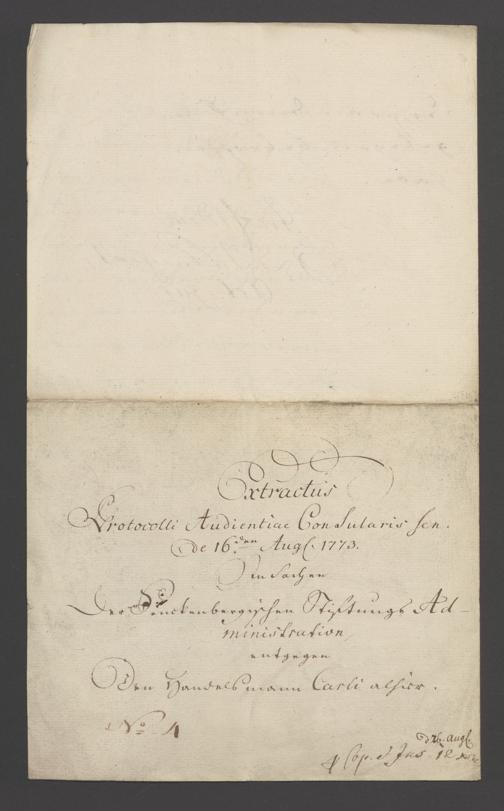 Extractus
Protocolli Audientiae Consularis sen.
de 16.den Aug. 1773.
In Sachen
Der Senckenbergischen Stiftungs Ad-
ministration
entgegen
Den Handelsmann Carli alhier.
No. 4
d 26. Aug.
Cop. & Jns. 12